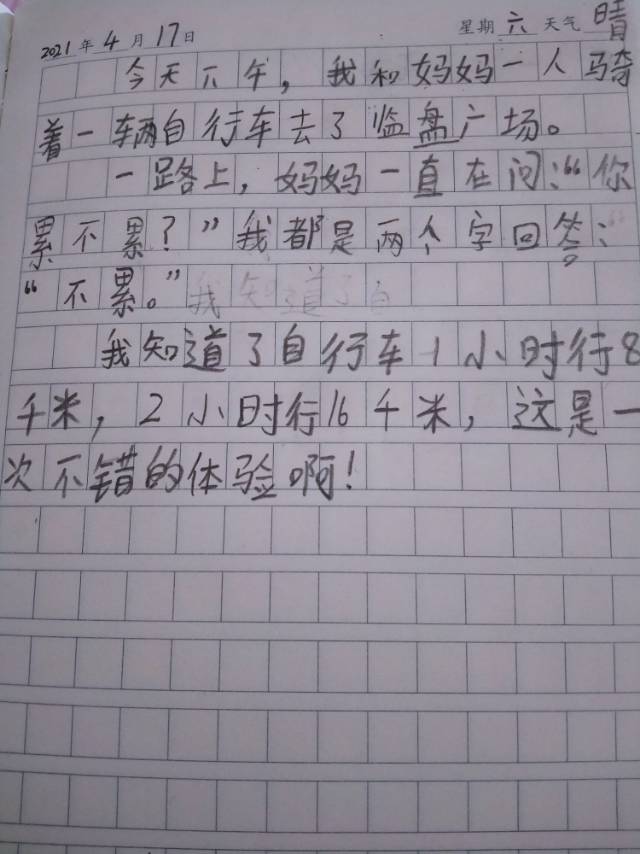 2021年4月17日 星期六 天气晴
今天下午，我和妈妈一人骑
着一辆自行车去了临盘广场。
一路上，妈妈一直在问：“你
累不累？”我都是两个字回答：
“不累。”我知道了自
我知道了自行车1小时行8
千米，2小时行16千米，这是一
次不错的体验啊！